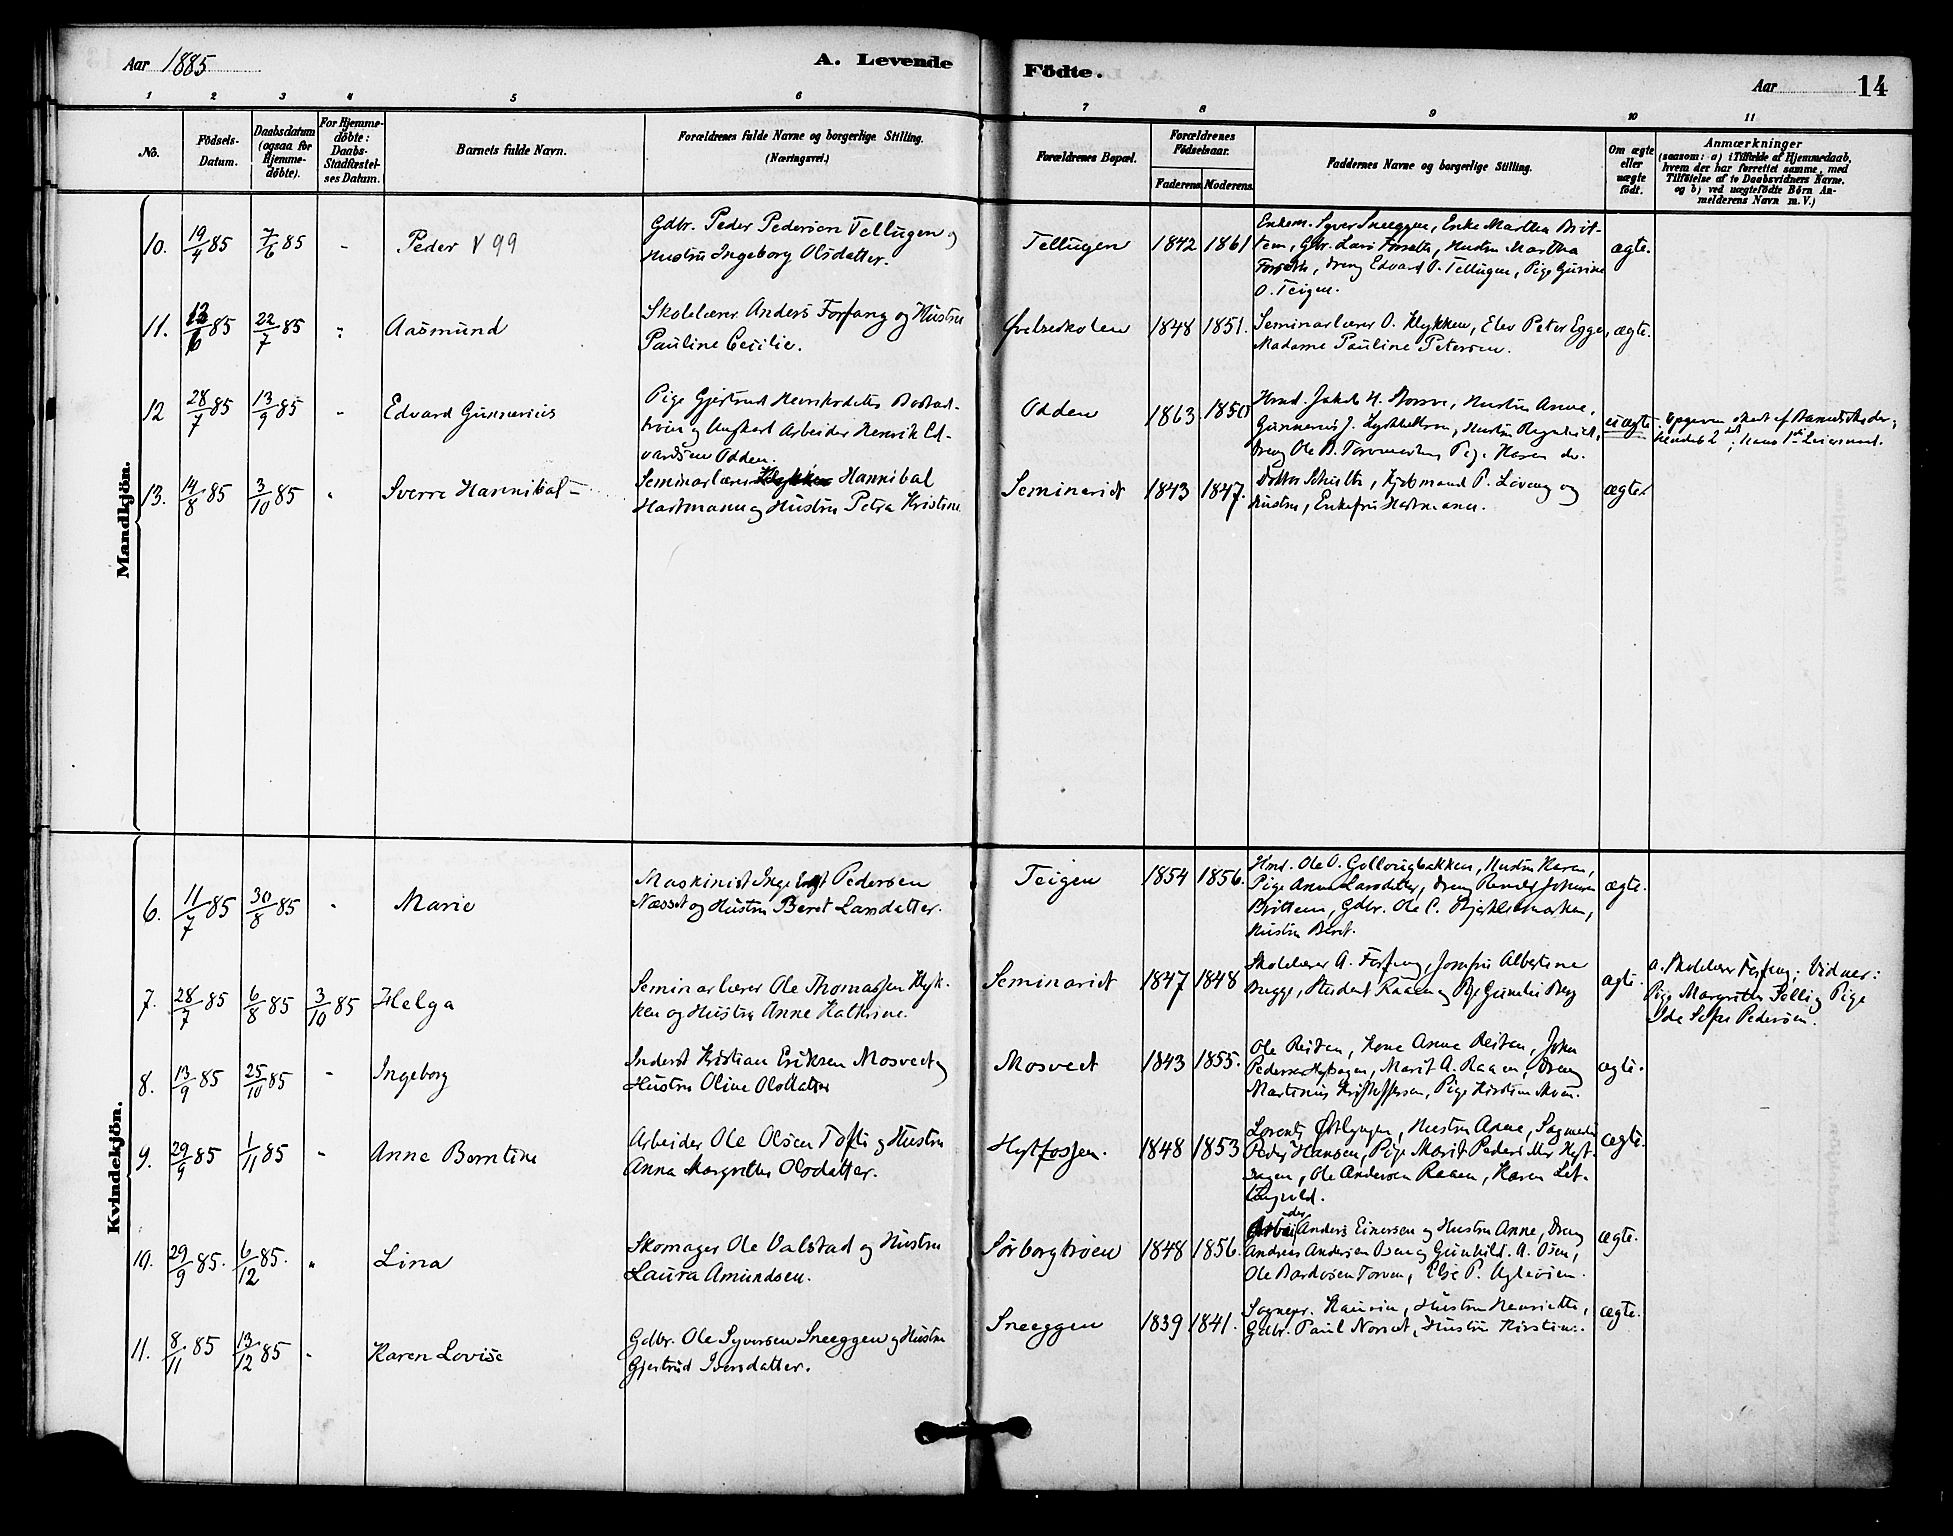 Aar 1885
A. Levende
Födte.
Aar
14
1
2
3
4
5
6
7
8
9
10
11
No.
Födsels-Datum.
Daabsdatum (ogsaa for Hjemmedöbte).
For Hjemmedöbte: Daabs-Stadfæstelses Datum.
Barnets fulde Navn.
Forældrenes fulde Navne og borgerlige Stilling.
(Næringsvei.)
Forældrenes Bopæl.
Forældrenes Födselsaar.
Faderens
Moderens
Faddernes Navne og borgerlige Stilling.
Om ægte eller uægte födt.
Anmærkninger
(saasom: a) i Tilfælde af Hjemmedaab,
hvem der har forrettet samme, med
Tilföielse af to Daabsvidners Navne,
og b) ved uægtefödte Börn An-
melderens Navn m. V.)
Mandkjön.
10. 19/4 85 7/6 85 - Peder V 99
Gdbr. Peder Pedersen Tellugen og
Hustru Ingeborg Olsdatter.
Tellugen 1842 1861
Enkem. Syver Sneeggen, Enke Martha Brit-
tem, Gbr. Lars Forseth, Hustru Martha
Forseth, Dreng Edvard O. Tellugen, Pige Gurine
O. Teigen.
ægte.
11. 6 85 22/7 85 Aasmund
Skolelærer Anders Forfang og Hustru
Pauline Cecilie.
Øvelseskolen 1848 1851.
Seminarlærer O. Klykken, Elev Peter Egge,
Madame Pauline Petersen.
ægte.
12 28/7 85 13/9 85 - Edvard Gunnerius
Pige Gjertrud
og Ungkarl Arbeider Henrik Ed-
vardsen Odden.
Odden 1863 1850
Hustru Anne,
Gunnerius J.
uægte
13. 14/8 85 3/10 85 Sverre Hannibal
Seminarlærer Hannibal
Hartmann og Hustru Petra Kristine
Seminariet 1843 1847.
Doktor Schults, Kjøbmand P. Löveng og
Hustru, Enkefru Hartmann.
ægte
Kvindekjön.
6. 11/7 85 30/8 85 - Marie
Maskinist Pedersen
Næsset og Hustru Beret Larsdatter.
Teigen 1854 1856.
Hmd. Ole O. Gollaugbakken, Hustru Karen,
Pige Anne Larsdatter, Dreng Johnsen
Brittem, Gdbr. Ole C.
Hustru Beret.
ægte.
7. 28/7 85 6/8 85 3/10 85 Helga
Seminarlærer Ole Thomassen Klyk-
ken og Hustru Anne Kathrine.
Seminariet 1847 1848
Skolelærer A. Forfang, Jomfru Albertine
Brugge, Student Raaen og Berg
ægte.
a. Skolelærer Forfang; Vidner:
Pige Margrethe Folli og Pige
Ida Sofie Pedersen.
8. 13/9 85 25/10 85 - Ingeborg
Inderst Kristian Eriksen Mosveet og
Hustru Oline Olsdatter
Mosveet 1843 1855.
Ole Reitan, Kone Anne Reitan, John
Pedersen, Marit A. Raaen, Dreng
Martinus Kristoffersen, Pige Kirstine Moen.
ægte.
9. 29/9 85 1/11 85 - Anne Berntine
Arbeider Ole Olsen Tofti og Hustru
Anna Margrethe Olsdatter.
Hytfossen. 1848 1853
Lorents Hustru Anne,
Peder Hansen, Pige Marit
Ole Andersen Raaen, Karen
ægte.
10. 29/9 85. 6/12 85. Lina
Skomager Ole Valstad og Hustru
Laura Amundsen.
Sörborgtröen 1848 1856.
Anders Einersen og Hustru Anne, Dreng
Andreas Andersen Øien og Gunhild. A. Øien,
Ole Bardosen Torven, Else P. Ugleöien.
ægte.
11. 8/11 85 13/12 85 - Karen Lovise
Gdbr. Ole Syversen Sneeggen og Hustru
Gjertrud Iversdatter.
Sneeggen 1839 1841.
Sognepr. Kaurin, Hustru Henriette,
Gdbr. Paul Norset, Hustru Kirstine.
ægte.